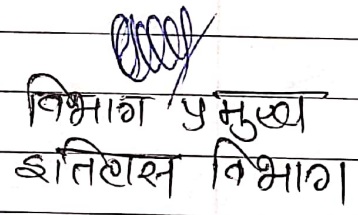 विभाग प्रमुख
इतिहास विभाग